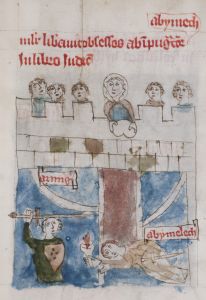 abymech
mlr libauit obsessos ab īpugōe
in libro iudic
armig
abymelech